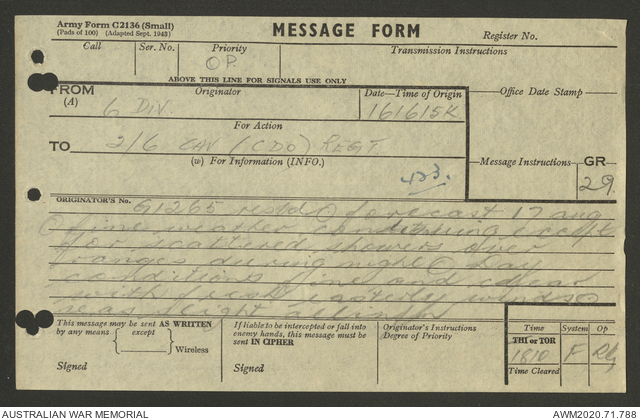 Army Form C2136 (Small)
(Pads of 100) (Adapted Sept. 1943)
MESSAGE FORM
Register No.
Call Ser. No. Priority Transmission Instructions
OP.
ABOVE THIS LINE FOR SIGNALS USE ONLY
FROM Originator Date—Time of Origin Office Date Stamp
(A) 6 DIV 161615K
For Action
TO 2/6 CAV (CDO) REGT
(w) For Information (INFO.) Message Instructions GR
29
ORIGINATOR'S No. G1265 restd O forecast 17 aug
O fine weather except
for scattered showers over
ranges during night O Day
conditions fine and clear
with fresh easterly winds O
This message may be sent AS WRITTEN
by any means except
Wireless
Signed
If liable to be intercepted or fall into
enemy hands, this message must be
sent IN CIPHER
Signed
Originator's Instructions
Degree of Priority
Time System Op
THI or TOR
1810 F
Time Cleared
AUSTRALIAN WAR MEMORIAL AWM2020.71.788